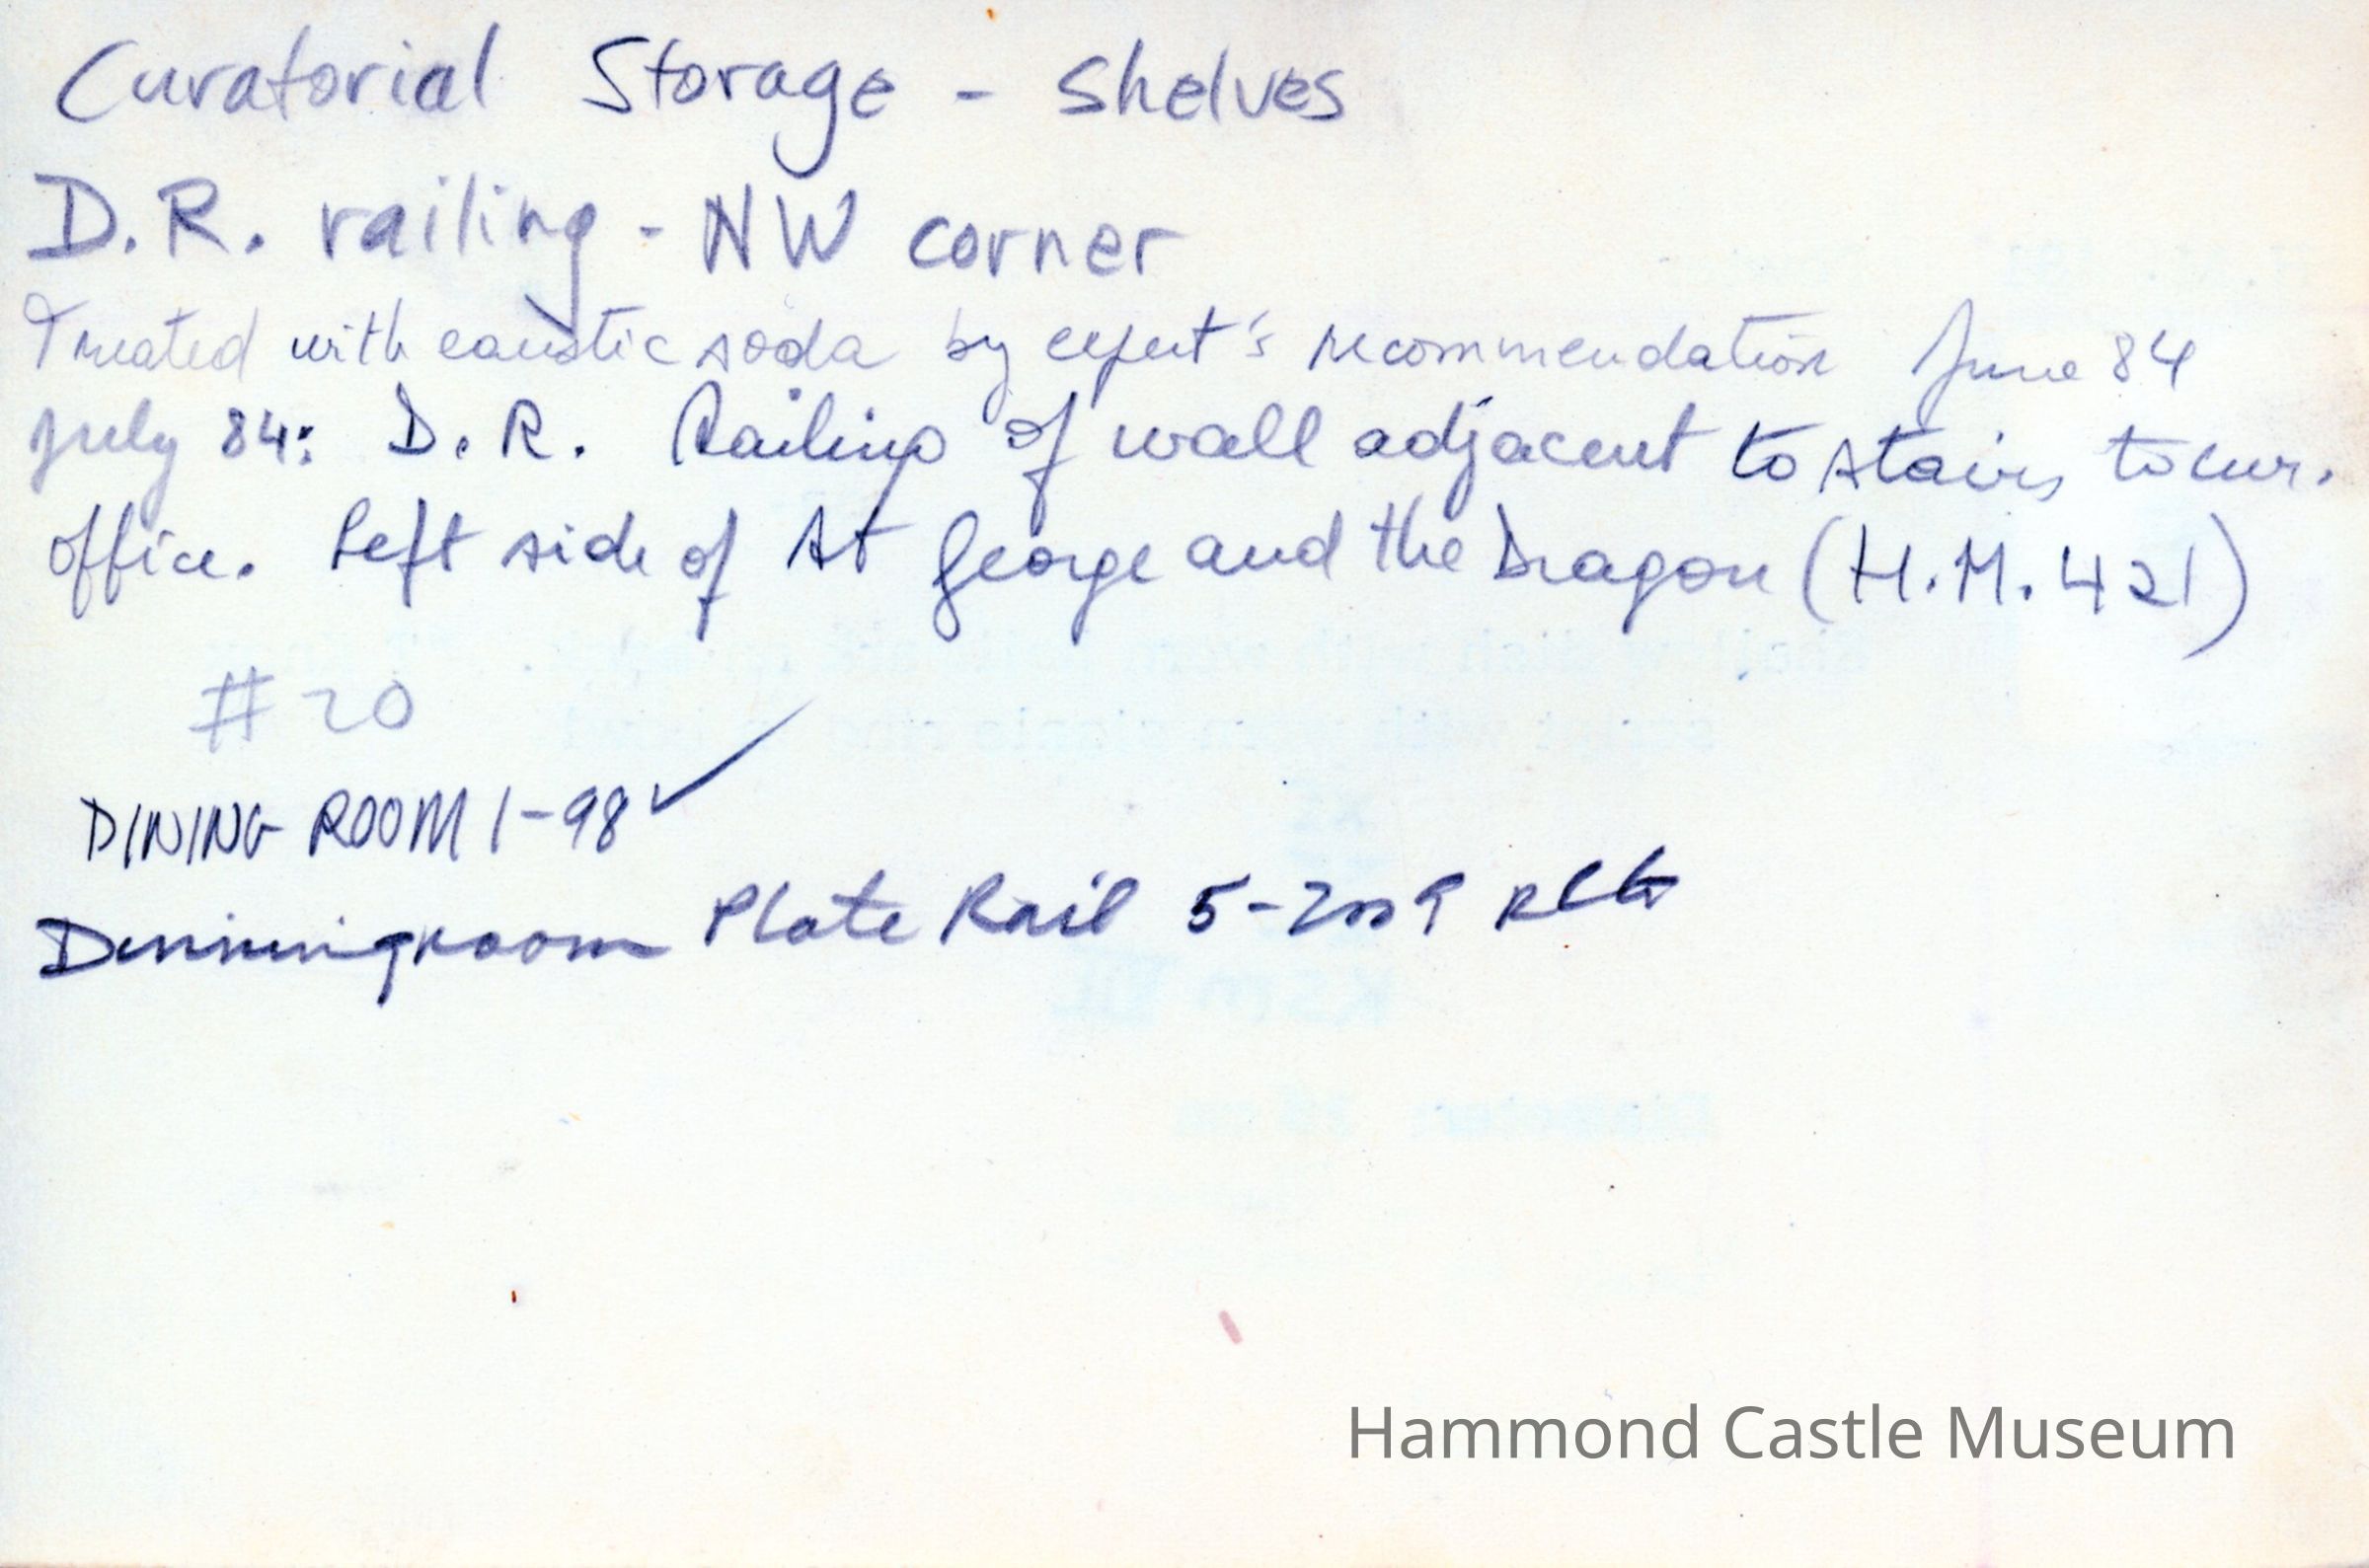 Curatorial Storage - Shelves
D.R. railing - NW corner
Treated with caustic soda by expert's recommendation June 84
July 84: D.R. Railing of wall adjacent to stairs to cur.
office. Left side of St George and the Dragon (H.M. 421)
# 20
DINING ROOM 1-98 ✓
Dinningroom Plate Rail 5-2009
Hammond Castle Museum